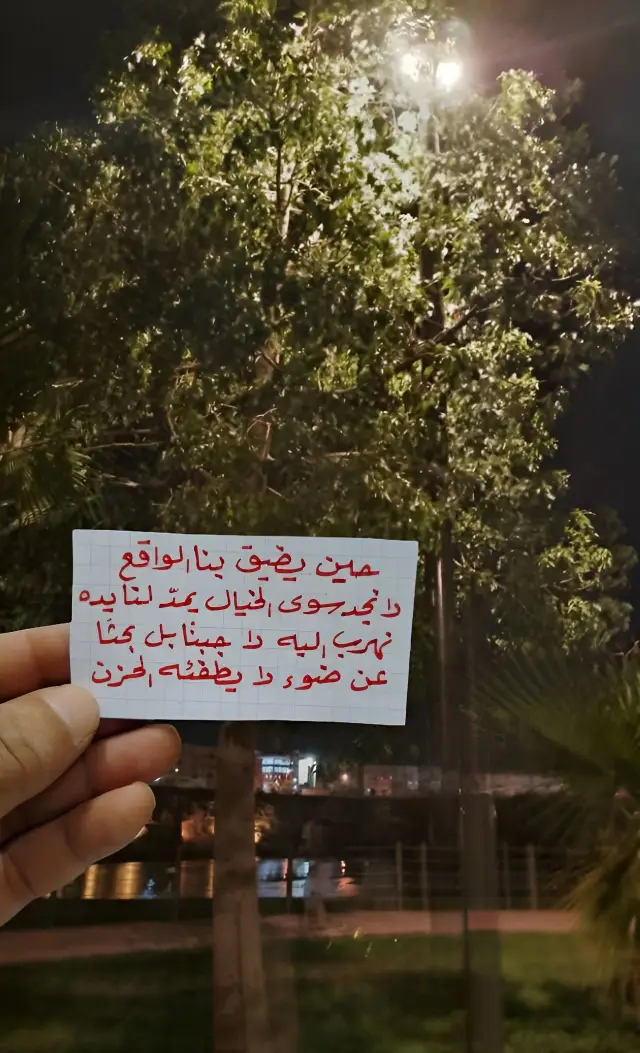 حين يضيق بنا الواقع
لا نجد سوى الخيال يمدّ لنا يده
نهرب إليه لا جبنًا بل بحثًا
عن ضوء لا يطفئه الحزن